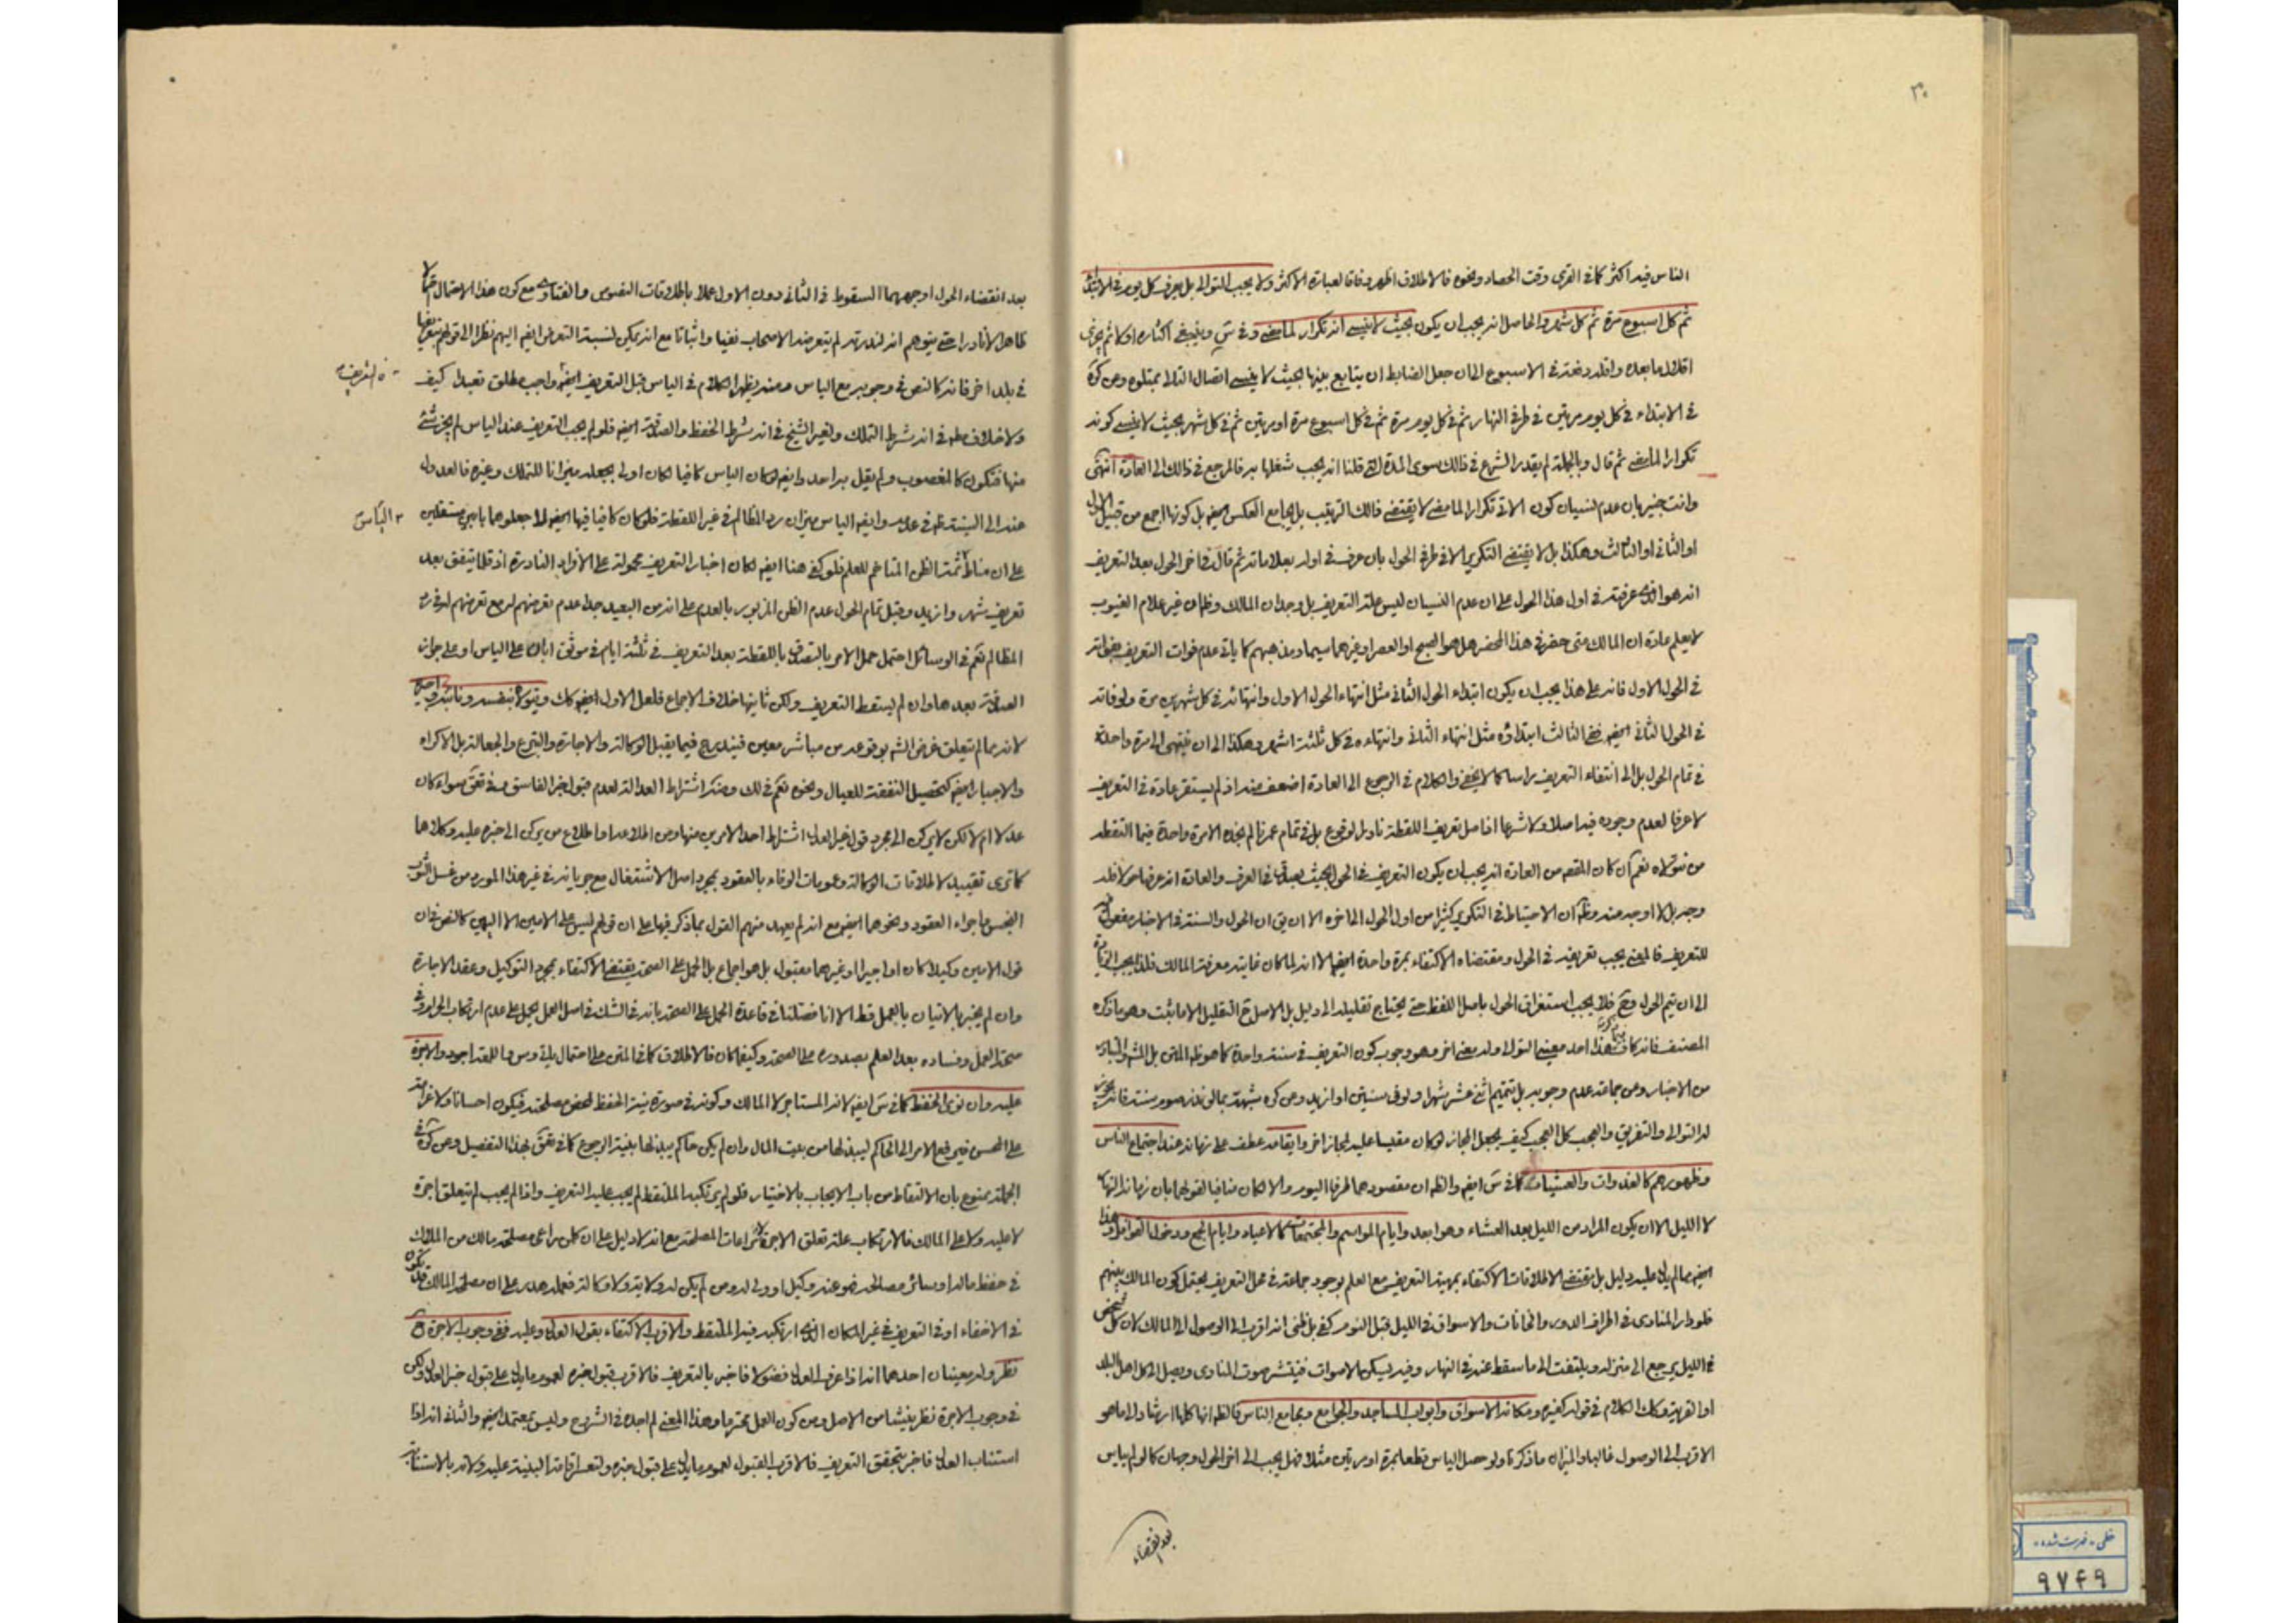 ٣٠
الناس فيه اكثر كما في القرى وقت الحصاد ونحوه فالاطلاق اظهر وفاقا لعبارة الاكثر ولا يجب التوالى بل يعرف كل يوم في الابتداء
ثم كل اسبوع مرة ثم كل شهر والحاصل انه يجب ان يكون بحيث لا ينسى انه تكرار لما مضى وفي س وينبغي اكثاره اولا ثم
اقلالا ما بعده واقله دفعة في الاسبوع الى ان جعل الضابط ان يتابع بينها بحيث لا ينسى اتصال التالى بمتلوه وعن كره
في الابتداء في كل يوم مرتين في طرفي النهار ثم في كل يوم مرة ثم في كل اسبوع مرة او مرتين ثم في كل شهر بحيث لا ينسى كونه
تكرارا لما مضى ثم قال وبالجملة لم يقدر الشرع في ذلك سوى المدة التي قلنا انه يجب شغلها به فالمرجع في ذلك الى العادة انتهى
وانت خبير بان عدم نسيان كون الاتى تكرارا لما مضى لا يقتضى ذلك الترتيب بل يجامع العكس ايضا بل كونها اجمع من قبيل الاول
او الثانى او الثالث وهكذا بل لا يقتضى التكرير الا في طرفي الحول بان عرف في اوله بعلاماته ثم قال في اخر الحول بعد التعريف
انه هو الذى عرفته في اول هذا الحول على ان عدم النسيان ليس علة التعريف بل وجدان المالك وظ ان غير علام الغيوب
لا يعلم عادة ان المالك متى حضر في هذا المحضر هل هو الصبح او العصر او غيرهما سيما ومذهبهم كما ياتى عدم فوات التعريف بفواته
في الحول الاول فانه على هذا يجب ان يكون ابتداء الحول الثانى مثل انتهاء الحول الاول وانتهائه في كل شهرين مرة ولو فاته
في الحول الثانى ايضا ففي الثالث ابتداؤه مثل انتهاء الثانى وانتهاءه في كل ثلثة اشهر وهكذا الى ان ينتهى الى مرة واحدة
في تمام الحول بل الى انتفاء التعريف راسا كما لا يخفى والكلام في الرجوع الى العادة اضعف منه اذ لم يستقر عادة في التعريف
لا عرفا لعدم وجوده فيه اصلا ولا شرعا اذ اصل تعريف اللقطة نادر الوقوع بل في تمام عمرنا لم نجده الا مرة واحدة فيما التقطه
من نتولاه نعم ان كان المقصود من العادة انه يجب ان يكون التعريف في الحول بحيث يصدق في العرف والعادة انه عرفها حولا فله
وجه بل لا اوجه منه وظ ان الاحتياط في التكرير كثيرا من اول الحول الى اخره الا ان يق ان الحول والسنة في الاخبار مفعول فيه
للتعريف فالمعنى يجب تعريفه في الحول ومقتضاه الاكتفاء بمرة واحدة ايضا الا انه لما كان غايته معرفة المالك فلذا يجب
الى ان يتم الحول وح فلا يجب استغراق الحول باصل اللفظ حتى يحتاج تقليله الى دليل بل الاصل ح التقليل الا ما ثبت وهو ما ذكره
المصنف فانه كاف هذا احد معنيى التوالى وله معنى اخر وهو وجوب كون التعريف في سنة واحدة كما هو ظ المتن بل المش
من الاخبار وعن جماعة عدم وجوبه بل تتميم اثنى عشر شهرا ولو في سنتين او ازيد وعن كره شبهته بما لو نذر صوم سنة فانه يجوز
له التوالى والتفريق والعجب كل العجب كيف يجعل المجاز لو كان مقيسا عليه لمجاز اخر وايقاعه عطف على زمانه عند اجتماع الناس
وظهورهم كالغدوات والعشيات كما في س ايضا والظ ان مقصودهما طرفا اليوم والا لكان منافيا لقولهما بان زمانه النهار
لا الليل الا ان يكون المراد من الليل بعد العشاء وهو ابعد وايام المواسم والمجتمعات كالاعياد وايام الجمع ودخول القوافل وهذا
ايضا مما لم يدل عليه دليل بل مقتضى الاطلاقات الاكتفاء بمهية التعريف مع العلم بوجود جماعة في محل التعريف يحتمل كون المالك بينهم
فلو دار المنادى في اطراف الدور والخانات والاسواق في الليل قبل النوم كفى بل ظنى انه اقرب الى الوصول الى المالك لان كل شخص
في الليل يرجع الى منزله ويلتفت الى ما سقط عنه في النهار وفيه ليسكن الاصوات فينتشر صوت المنادى ويصل الى كل اهل البلد
او القرية وكك الكلام في قوله كغيره ومكانه الاسواق وابواب المساجد والجوامع ومجامع الناس فالظ انها كلها ارشاد الى ما هو
الاقرب الى الوصول فالمدار والميزان ما ذكرنا ولو حصل الياس قطعا بمرة او مرتين مثلا فهل يجب الى اخر الحول وجهان كما لو لم يياس
بعد انقضاء
بعد انقضاء الحول اوجههما السقوط في الثانى دون الاول عملا باطلاقات النصوص والفتاوى مع كون هذا الاحتمال قائما
ظاهرا الا نادرا حتى يتوهم انه لندرته لم يتعرضه الاصحاب نفيا واثباتا مع انه يمكن نسبة التعرض ايضا اليهم نظرا الى قولهم بتعريفها
في بلد اخر فانه كالنص في وجوبه مع الياس ومنه يظهر الكلام في الياس قبل التعريف ايضا واجب مطلق تعبدا كيف
ه التعريف
ولا خلاف ظ في انه شرط التملك ولغير الشيخ في انه شرط الحفظ والصدقة ايضا فلو لم يجب التعريف عند الياس لم يجز شئ
منها فتكون كالمغصوب ولم يقل به احد وايضا لو كان الياس كافيا لكان اولى بجعله ميزانا للتملك وغيره فالعدول
عنه الى السنة ظ في عدمه وايضا الياس ميزان رد المظالم في غير اللقطة فلو كان كافيا فيها ايضا لما جعلوهما بابين مستقلين
الياس
على ان مناط ثمة الظن المتاخم للعلم فلو كفى هنا ايضا لكان اخبار التعريف محمولة على الافراد النادرة اذ قلما يتفق بعد
تعريف شهر وازيد وقبل تمام الحول عدم الظن المزبور بالعدم على انه من البعيد جدا عدم تعرضهم له مع تعرضهم له في رد
المظالم نعم في الوسائل احتمل حمل الامر بالتصدق باللقطة بعد التعريف في ثلثة ايام في موثق ابان على الياس او على جواز
الصدقة بعدها وان لم يسقط التعريف ولكن ثانيها خلاف الاجماع فلعل الاول ايضا كك ويتولاه بنفسه ونائبه واجيره
لانه مما لم يتعلق غرض الشم بوقوعه من مباشر معين فيندرج فيما يقبل الوكالة والاجارة والتبرع والجعالة بل الاكراه
والاجبار ايضا كتحصيل النفقة للعيال ونحوه نعم في لك وعن كره اشتراط العدالة لعدم قبول خبر الفاسق وفي تعق سواء كان
عدلا ام لا لكن لا يركن الى مجرد قول غير العدل اشتراط احد الامرين منها ومن اطلاعه او اطلاع من يركن الى خبره عليه وكلاهما
كما ترى تقييد لاطلاقات الوكالة وعمومات الوفاء بالعقود بمجرد اصل الاشتغال مع جريانه في غير هذا المورد من غسل الثوب
النجس واجراء العقود ونحوهما ايضا مع انه لم يعهد منهم القول بما ذكر فيها على ان قولهم ليس على الامين الا اليمين كالنص في ان
قول الامين وكيلا كان او اجيرا او غيرهما مقبول بل هو اجماع بل الحمل على الصحة يقتضى الاكتفاء بمجرد التوكيل وعقد الاجارة
وان لم يخبر بالاتيان بالعمل قط الا انا فصلنا في قاعدة الحمل على الصحة بانه في الشك في اصل العمل يحمل على عدم ارتكاب الحرام وفي
صحة العمل وفساده بعد العلم بصدوره على الصحة وكيف كان فالاطلاق كما في المتن اجود والاجرة
عليه وان نوى الحفظ كما في س ايضا لانه المستاجر لا المالك وكونه في صورة نية الحفظ لمحض مصلحته فيكون احسانا ولا غرامة
على المحسن فيرفع الامر الى الحاكم ليبذلها من بيت المال وان لم يكن حاكم يبذلها بنية الرجوع كما في تعق بهذا التفصيل وعن كره في
الجملة ممنوع بان الالتقاط من باب الايجاب بالاختيار فلو لم يرتكبه الملتقط لم يجب عليه التعريف واذا لم يجب لم يتعلق اجرة
لا عليه ولا على المالك فالارتكاب علة تعلق الاجرة لا مراعات المصلحة مع انه لا دليل على ان كل من راعى مصلحة مالك من الملاك
في حفظ ماله او سائر مصالحه فهو عنه وكيل او ولى له ومن لم يكن له ولاية ولا وكالة فعمله هدر على ان مصلحة المالك قد تكون
في الاخفاء او في التعريف في غير المكان الذى ارتكبه فيه الملتقط والاقرب الاكتفاء بقول العدل وعليه ففي وجوب الاجرة ح
نظر وله معنيان احدهما انه اذا عرف العدل فضولا فاخبر بالتعريف فالاقرب قبول خبره لعموم ما يدل على قبول خبر العدل ولكن
في وجوب الاجرة نظر ينشا من الاصل ومن كون العمل محترما وهذا المعنى لم اجده في الشروح وليس بمعتمد ايضا والثانى انه اذا
استناب العدل فاخبر بتحقق التعريف فالاقرب القبول لعموم ما يدل على قبول خبره ولتعسر اقامة البينة عليه ولانه بالاستنابة
خطى - فهرست شده
٩٧۴٩